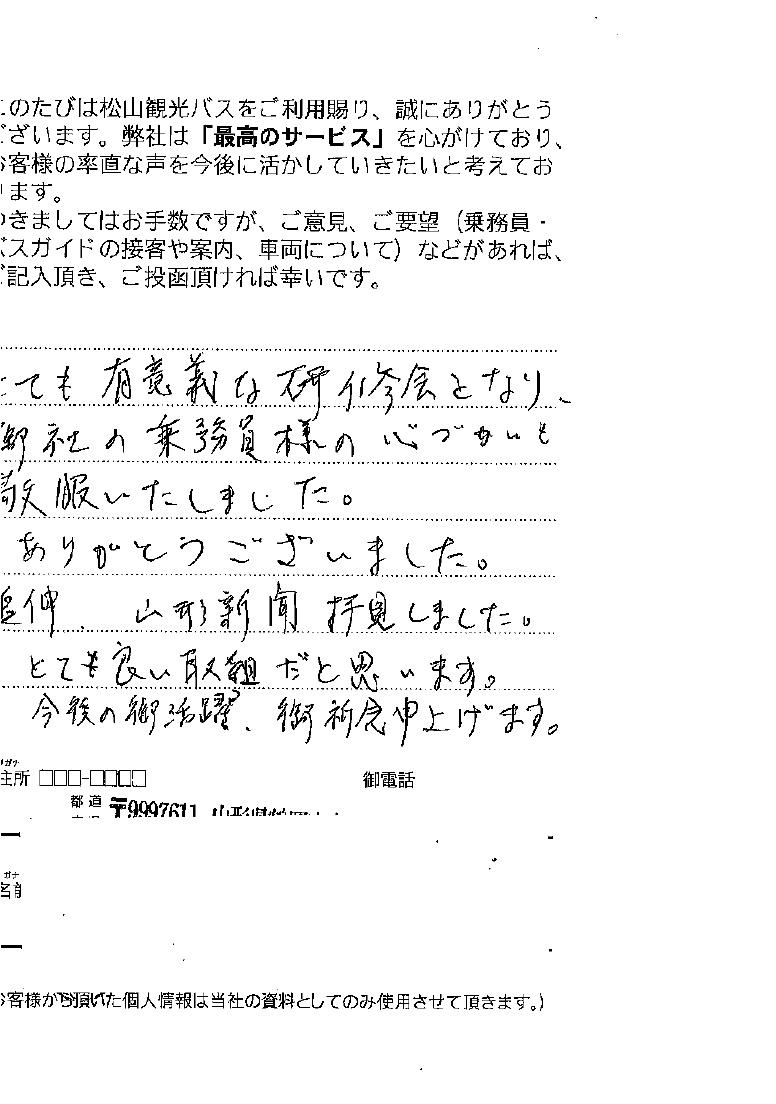 このたびは松山観光バスをご利用賜り、誠にありがとう
ございます。弊社は「最高のサービス」を心がけており、
お客様の率直な声を今後に活かしていきたいと考えてお
ります。
つきましてはお手数ですが、ご意見、ご要望（乗務員・
バスガイドの接客や案内、車両について）などがあれば、
ご記入頂き、ご投函頂ければ幸いです。
とても有意義な研修会となり、
御社の乗務員様の心づかいも
敬服いたしました。
ありがとうございました。
追伸、山形新聞拝見しました。
とても良い取組だと思います。
今後の御活躍、御祈念申上げます。
ガナ
住所 □□□-□□□□ 御電話
都道 〒9997611 山形県
ガナ
名前
お客様から頂いた個人情報は当社の資料としてのみ使用させて頂きます。)